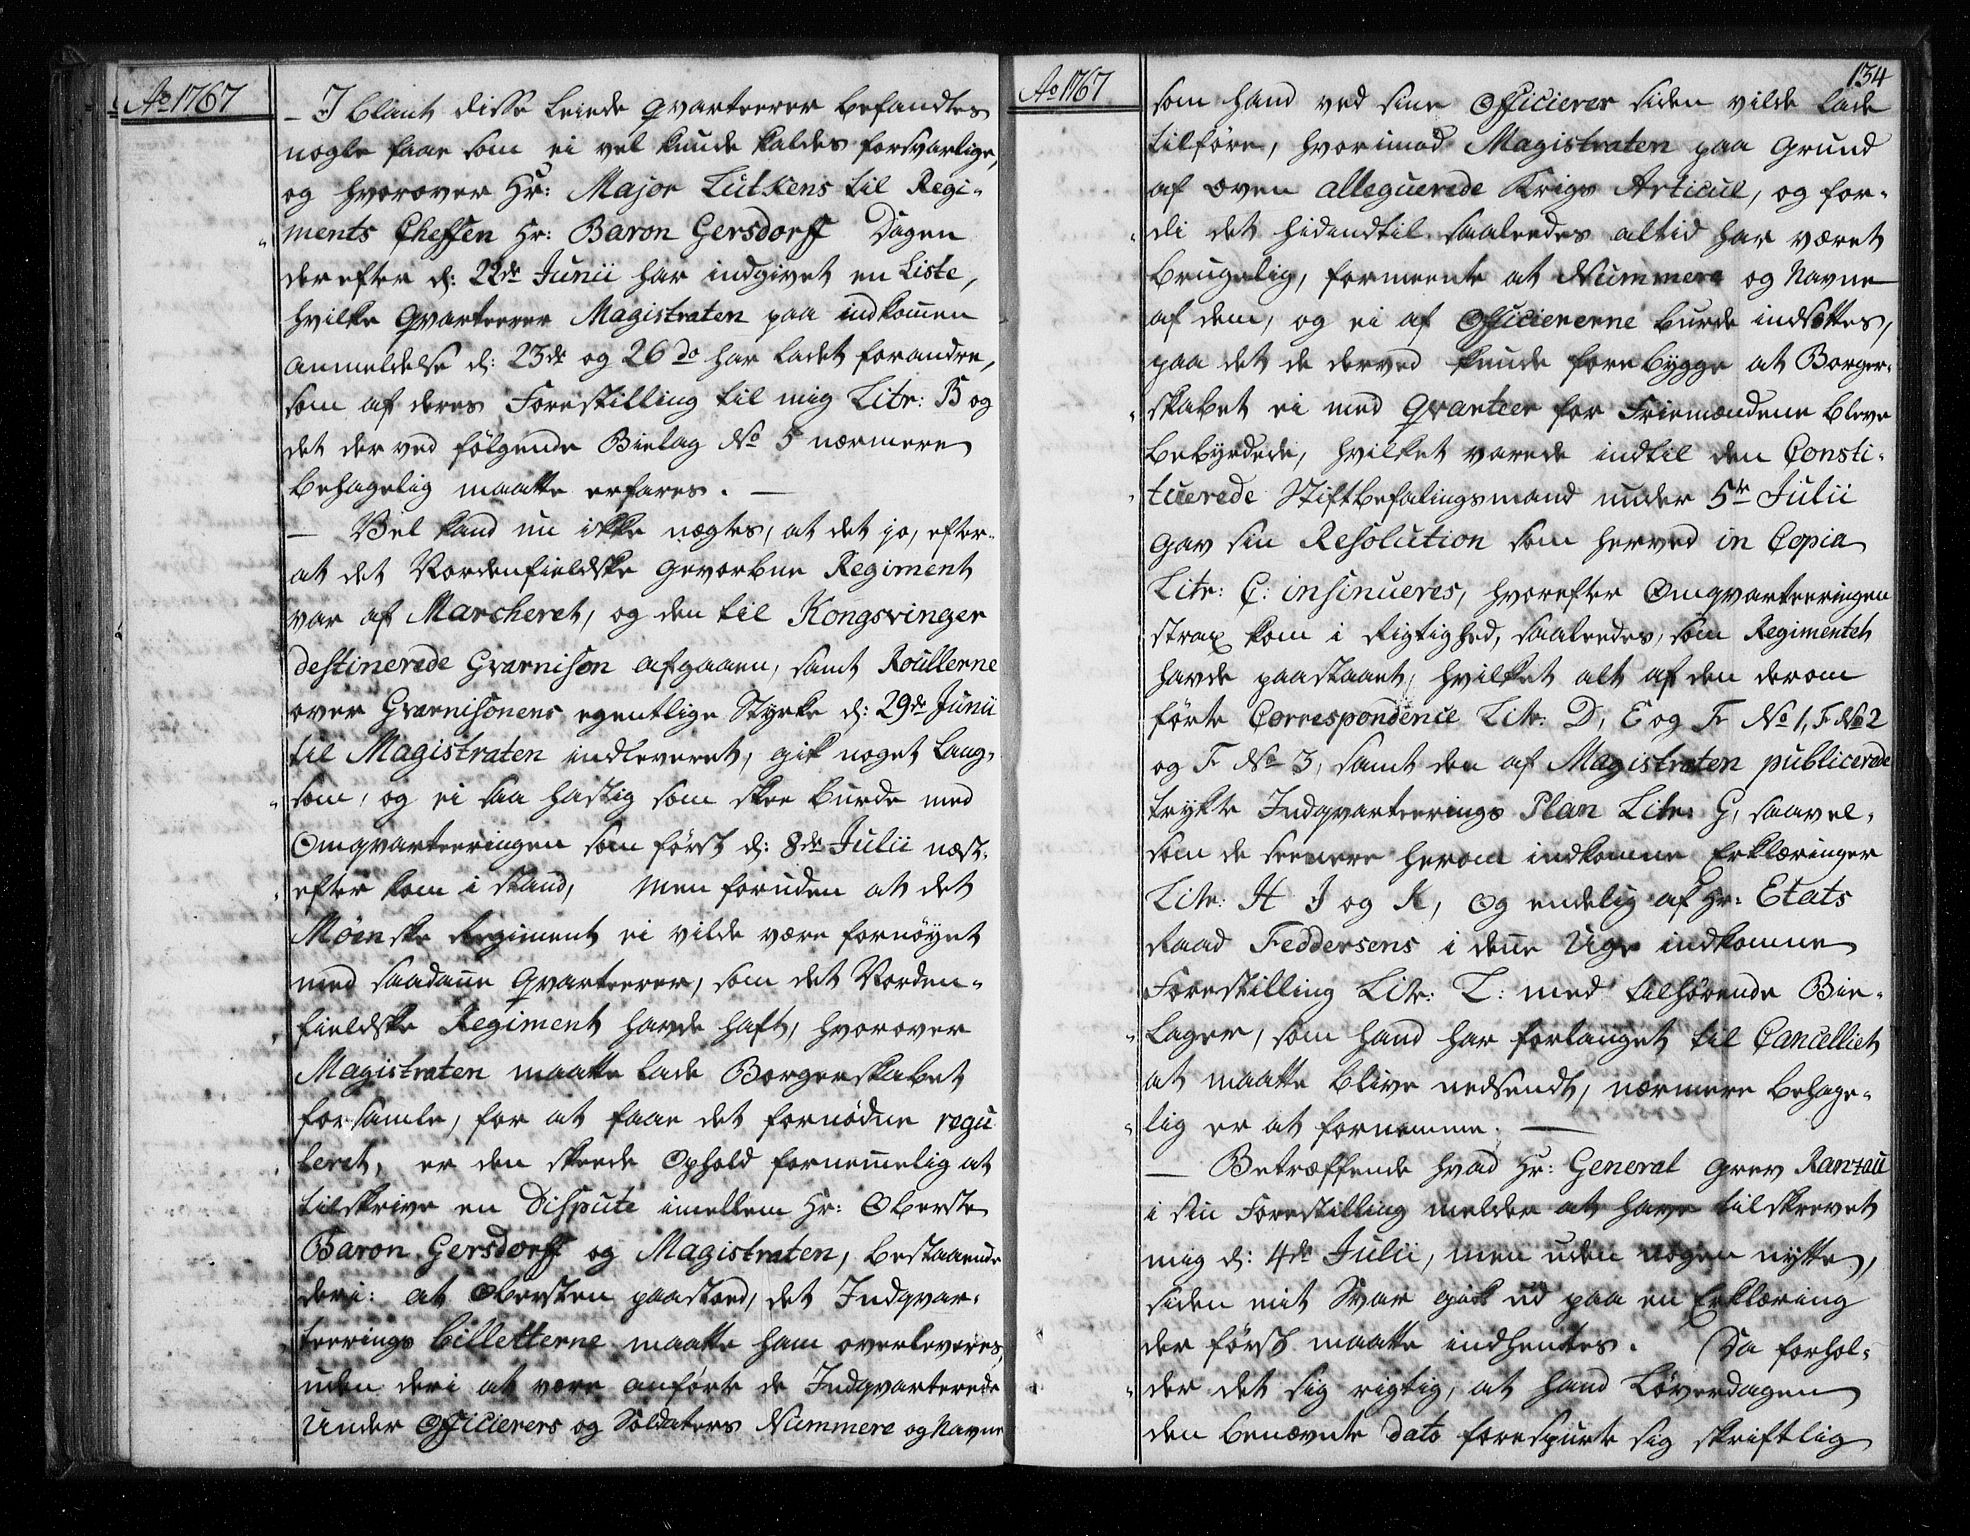 Ao 1767
– I blant disse leiede qvarteerer befandtes
nogle faae som ei vel kunde kaldes forsvarlige,
og hvorover Hr: Major Lütkens til Regi-
ments Cheffen Hr: Baron Gersdorff Dagen
derefter d: 22de Junii har indgivet en Liste,
hvilke qvarteerer Magistraten paa indkommen
anmeldelse d: 23de og 26do har ladet forandre,
som af deres Forestilling til mig Litr: B og
det derved følgende Bielag No 5 nærmere
behagelig maatte erfares. –
– Vel kand nu ikke nægtes, at det jo, efter-
at det Nordenfieldske gevorbne Regiment
var af Marcheret, og den til Kongsvinger
destinerede Gvarnison afgaaen, samt Roullerne
over Gvarnisonens egentlige Styrke d: 29de Junii
til Magistraten indleveret, gik noget lang-
som, og ei saa hastig som skee burde med
Omqvarteeringen som først d: 8de Julii næst-
efter kom i stand, men foruden at det
Møenske Regiment ei vilde være fornøyet
med saadane qvarteerer, som det Norden-
fieldske Regiment havde haft, hvorover
Magistraten maatte lade Borgerskabet
forsamle, for at faae det fornødne regu
leret, er den skeede Ophold fornemelig at
tilskrive en Dispute imellem Hr: Oberste
Baron Gersdorff og Magistraten, bestaaende
deri: at Obersten paastoed, det Indqvar-
teerings billetterne maatte ham overleveres,
uden deri at være anførte de Indqvarterede
Under Officierers og Soldaters Nummere og Navne
Ao 1767
134
som hand ved sine Officierer siden vilde lade
tilføre, hvorimod Magistraten paa grund
af oven alleguerede Krigs Articul, og for-
di det hidindtil saaleedes altid har været
brugelig, formeente at Nummere og Navne
af dem, og ei af Officiererne burde indsættes,
paa det de derved kunde forebygge at Borger-
skabet ei med qvarteer for Friemændene bleve
bebyrdede, hvilket varede indtil den Consti-
tuerede Stiftbefalingsmand under 5te Julii
gav sin Resolution som herved in Copia
Litr: C: insinueres, hvorefter Omqvarteeringen
strax kom i Rigtighed, saaleedes, som Regimentet
havde paastaaet, hvilket alt af den derom
førte Correspondence Litr: D, E og F No 1, F No 2
og F No 3, samt den af Magistraten publicerede
trykte Indqvarteerings Plan Litr: G, saavel-
som de seenere herom indkomne Erklæringer
Litr: H I og K, og endelig af Hr: Etats
Raad Feddersens i denne Uge indkomne
Forestilling Litr: L: med tilhørende Bie-
lager, som hand har forlanget til Cancelliet
at maatte blive nedsendt, nærmere behage-
lig er at fornemme. –
– Betræffende hvad Hr: General Grev Ranzau
i sin Forestilling melder at have tilskrevet
mig d: 4de Julii, men uden nogen nytte,
siden mit Svar gik ud paa en Erklæring
der først maatte indhentes. Da forhol-
der det sig rigtig, at hand Løverdagen
den benævnte dato forespurte sig skriftlig